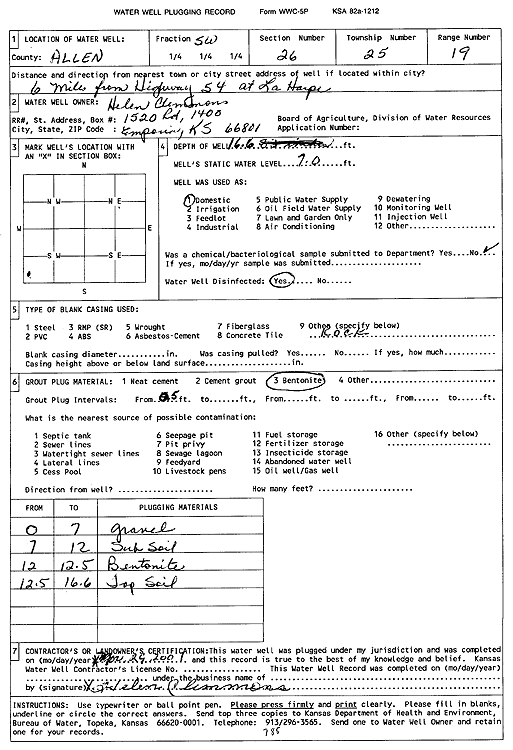 WATER WELL PLUGGING RECORD Form WWC-5P KSA 82a-1212
1 LOCATION OF WATER WELL: Fraction SW Section Number Township Number Range Number
County: ALLEN 1/4 1/4 1/4 26 25 19
Distance and direction from nearest town or city street address of well if located within city?
6 Miles from Highway 54 at La Harpe
2 WATER WELL OWNER: Helen Clemmons
RR#, St. Address, Box #: 1520 Rd, 1400 Board of Agriculture, Division of Water Resources
City, State, ZIP Code : Emporia, KS 66801 Application Number:
3 MARK WELL'S LOCATION WITH AN "X" IN SECTION BOX:
N
NW NE
W E
SW SE
S
4 DEPTH OF WELL 16.6 ft.
WELL'S STATIC WATER LEVEL 7.0 ft.
WELL WAS USED AS:
1 Domestic 5 Public Water Supply 9 Dewatering
2 Irrigation 6 Oil Field Water Supply 10 Monitoring Well
3 Feedlot 7 Lawn and Garden Only 11 Injection Well
4 Industrial 8 Air Conditioning 12 Other...........
Was a chemical/bacteriological sample submitted to Department? Yes....No.✓
If yes, mo/day/yr sample was submitted..................
Water Well Disinfected: Yes..... No......
5 TYPE OF BLANK CASING USED:
1 Steel 3 RMP (SR) 5 Wrought 7 Fiberglass 9 Other (specify below)
2 PVC 4 ABS 6 Asbestos-Cement 8 Concrete Tile Rock
Blank casing diameter............in. Was casing pulled? Yes...... No...... If yes, how much..........
Casing height above or below land surface.................in.
6 GROUT PLUG MATERIAL: 1 Neat cement 2 Cement grout 3 Bentonite 4 Other....................
Grout Plug Intervals: From .5 ft. to......ft., From..... to.....ft., From..... to.....ft.
What is the nearest source of possible contamination:
1 Septic tank 6 Seepage pit 11 Fuel storage 16 Other (specify below)
2 Sewer lines 7 Pit privy 12 Fertilizer storage ....................
3 Watertight sewer lines 8 Sewage lagoon 13 Insecticide storage
4 Lateral lines 9 Feedyard 14 Abandoned water well
5 Cess Pool 10 Livestock pens 15 Oil well/Gas well
Direction from well? .................. How many feet? ..................
FROM TO PLUGGING MATERIALS
0 7 gravel
7 12 Sub Soil
12 12.5 Bentonite
12.5 16.6 Top Soil
7 CONTRACTOR'S OR LANDOWNER'S CERTIFICATION: This water well was plugged under my jurisdiction and was completed
on (mo/day/year) 24, 2001. and this record is true to the best of my knowledge and belief. Kansas
Water Well Contractor's License No. ................ This Water Well Record was completed on (mo/day/year)
.................... under the business name of ........................................
by (signature) X Helen Clemmons
INSTRUCTIONS: Use typewriter or ball point pen. Please press firmly and print clearly. Please fill in blanks,
underline or circle the correct answers. Send top three copies to Kansas Department of Health and Environment,
Bureau of Water, Topeka, Kansas 66620-0001. Telephone: 913/296-3565. Send one to Water Well Owner and retain
one for your records. 785